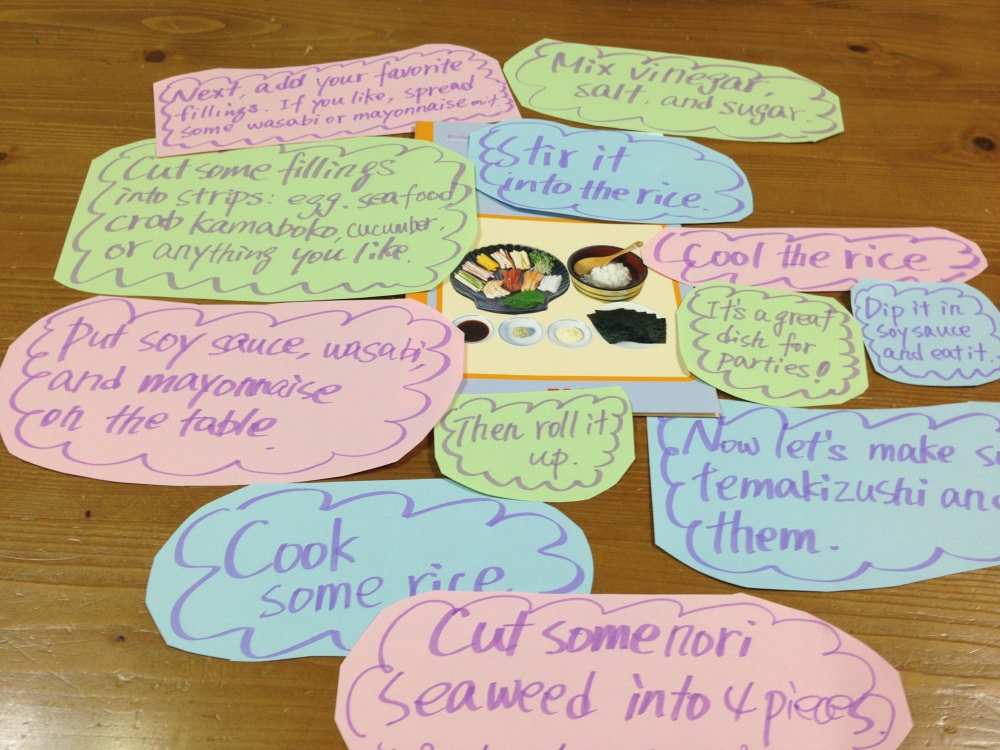 Next, add your favorite
fillings. If you like, spread
some wasabi or mayonnaise on it.
Mix vinegar,
salt, and sugar.
Cut some fillings
into strips: egg, seafood,
crab kamaboko, cucumber,
or anything you like.
Stir it
into the rice.
Cool the rice
It's a great
dish for
parties!
Dip it in
soy sauce
and eat it.
Put soy sauce, wasabi,
and mayonnaise
on the table.
Then roll it
up.
Now let's make s
temakizushi an
them.
Cook
some rice.
Cut some nori
seaweed into 4 pieces.